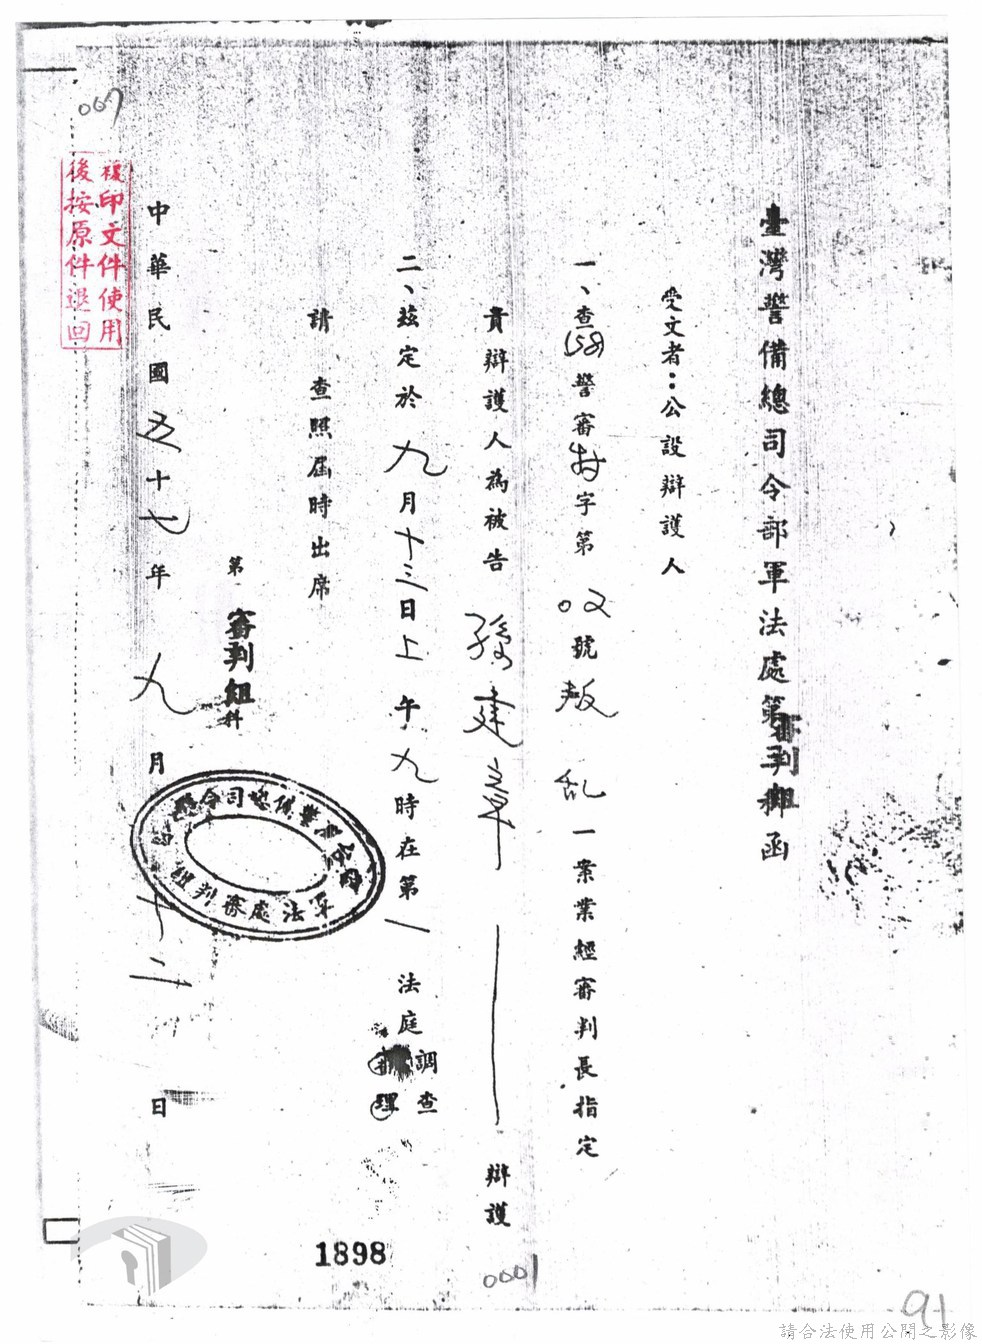 臺灣警備總司令部軍法處第審判組函
受文者：公設辯護人
一、查(58)警審特字第02號叛乱一案業經審判長指定
貴辯護人為被告孫建章辯護
二、茲定於九月十三日上午九時在第一法庭調查審理
請查照屆時出席
第審判組科
中華民國五十七年九月十二日
軍法處審判組
複印文件使用
後按原件退回
007
1898
0001
91
請合法使用公開之影像